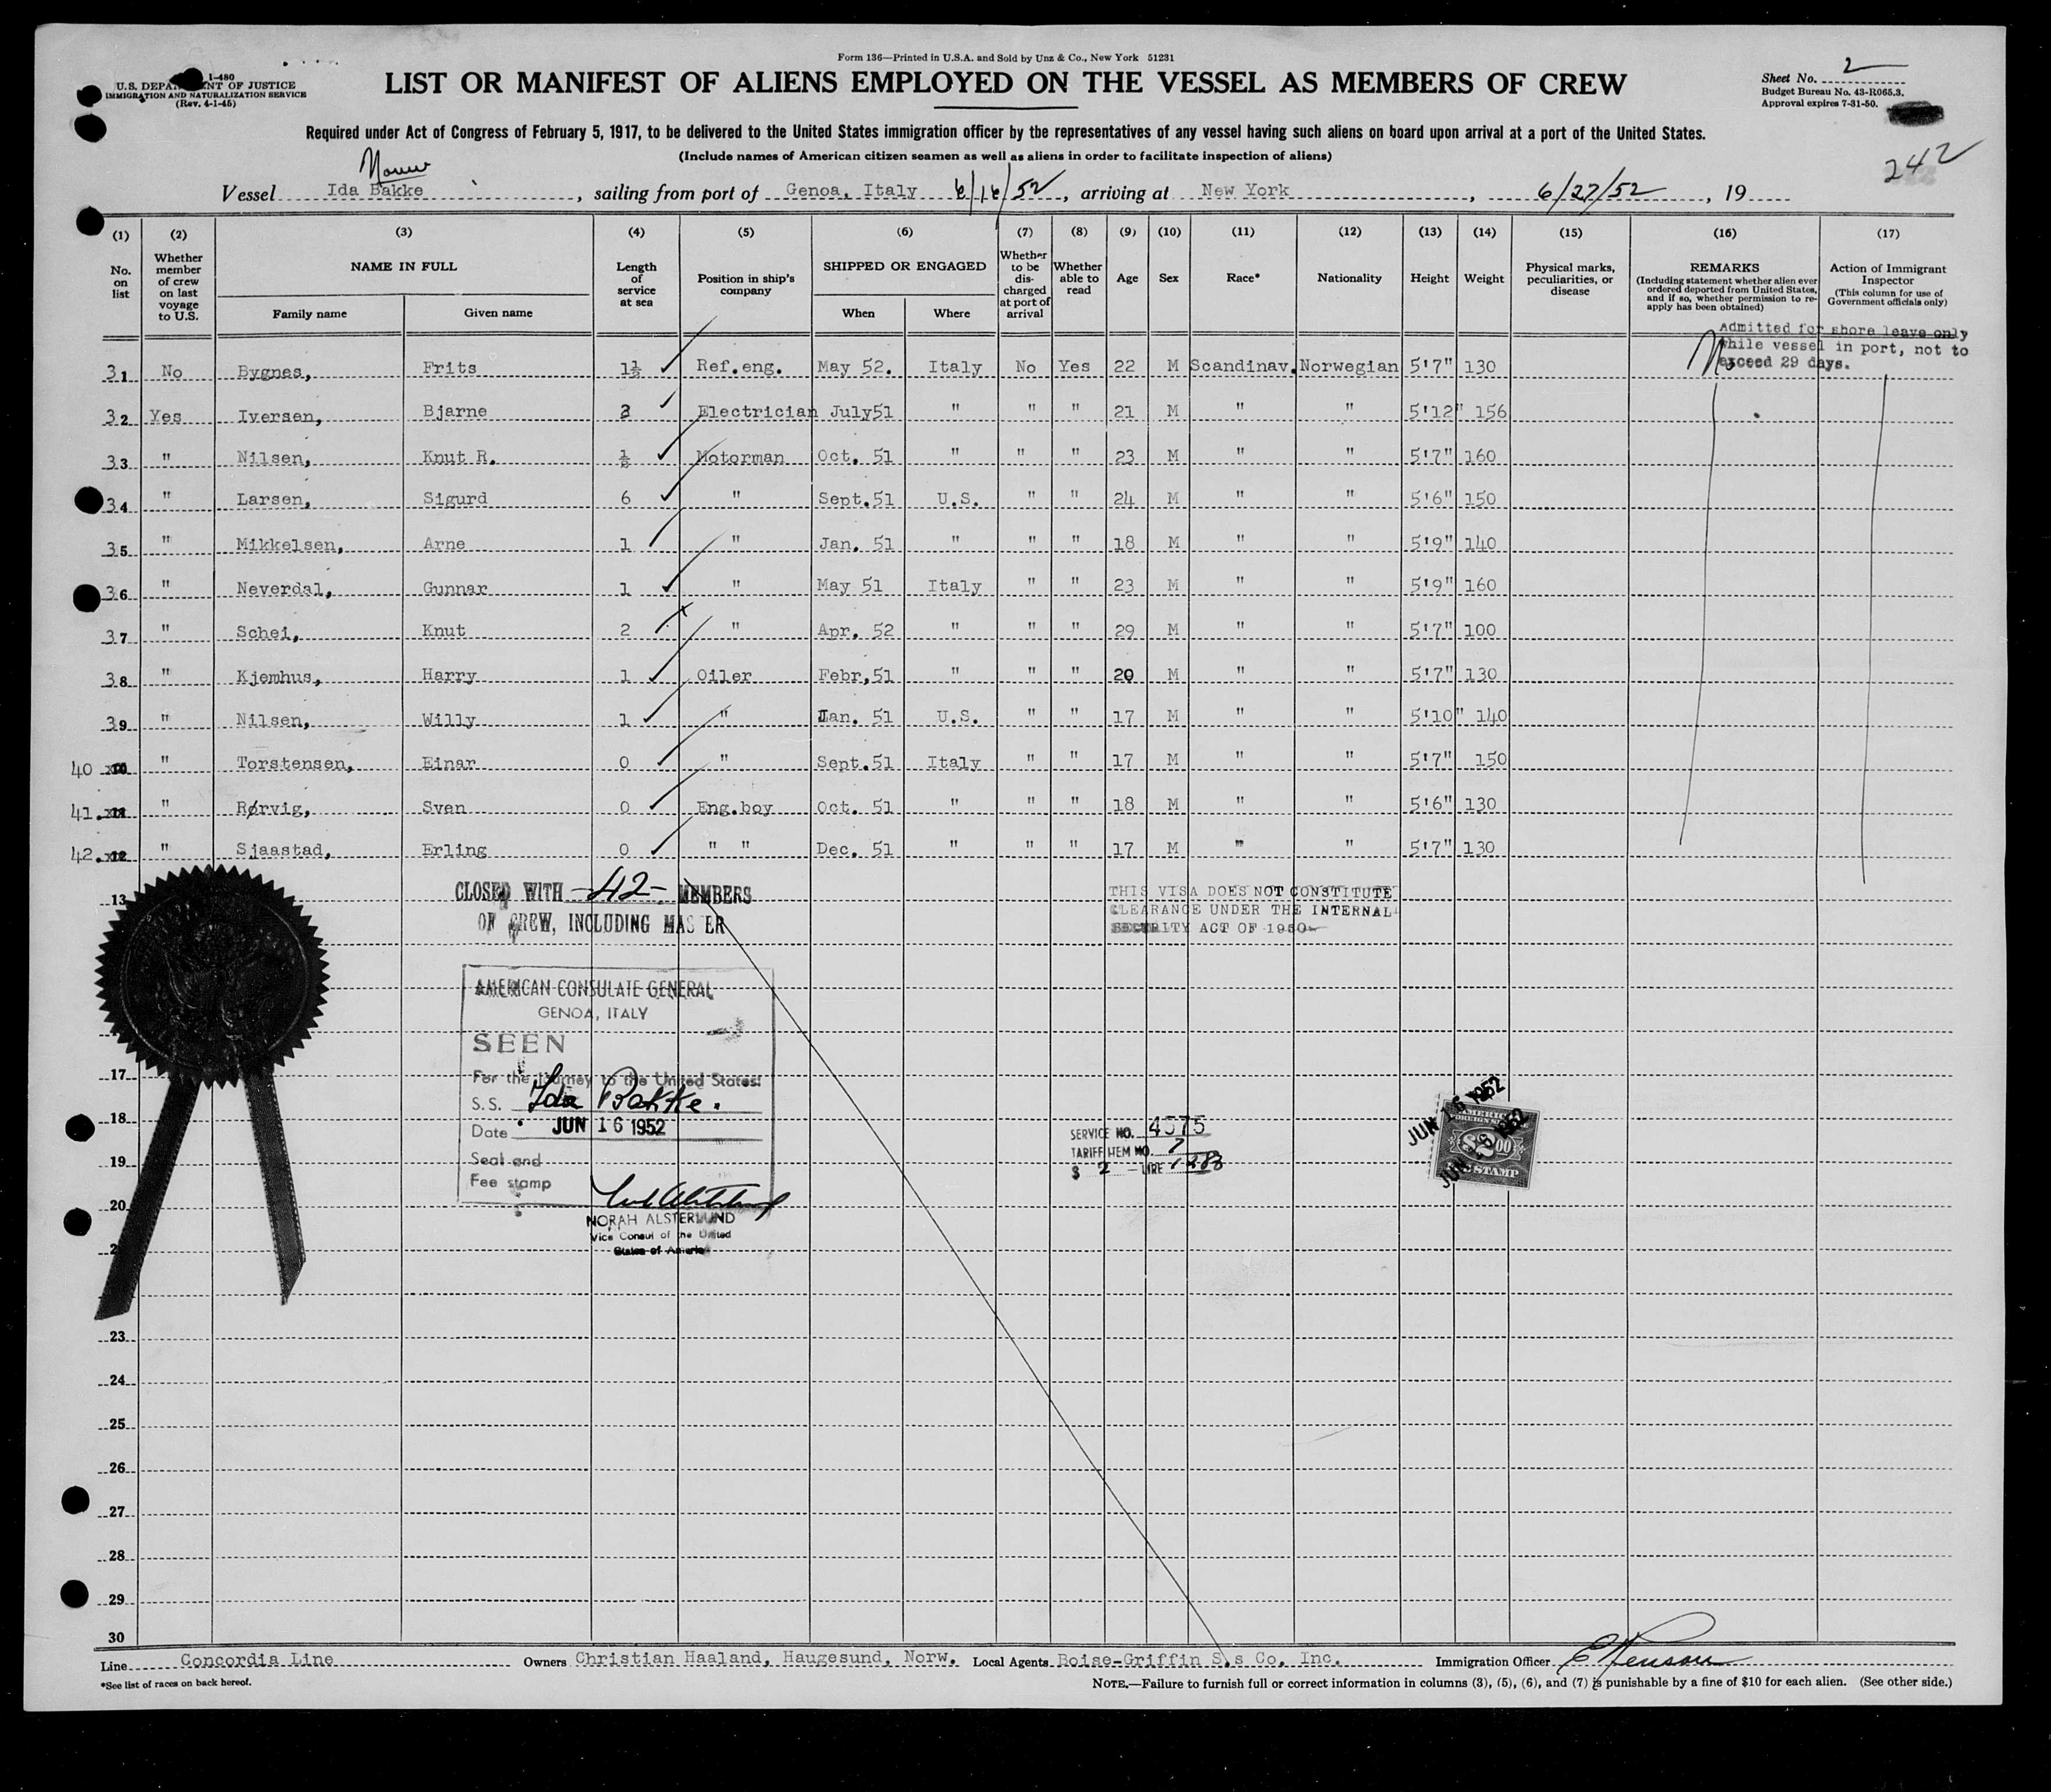 Form 136—Printed in U.S.A. and Sold by Unz & Co., New York 51231
1-480
U.S. DEPARTMENT OF JUSTICE
IMMIGRATION AND NATURALIZATION SERVICE
(Rev. 4-1-45)
LIST OR MANIFEST OF ALIENS EMPLOYED ON THE VESSEL AS MEMBERS OF CREW
Sheet No. 2
Budget Bureau No. 43-R065.3.
Approval expires 7-31-50.
Required under Act of Congress of February 5, 1917, to be delivered to the United States immigration officer by the representatives of any vessel having such aliens on board upon arrival at a port of the United States.
(Include names of American citizen seamen as well as aliens in order to facilitate inspection of aliens)
242
Vessel Ida Bakke, sailing from port of Genoa, Italy 6/16/52, arriving at New York, 6/27/52, 19
(1) (2) (3) (4) (5) (6) (7) (8) (9) (10) (11) (12) (13) (14) (15) (16) (17)
No. on list
Whether member of crew on last voyage to U.S.
NAME IN FULL
Family name
Given name
Length of service at sea
Position in ship's company
SHIPPED OR ENGAGED
When
Where
Whether to be discharged at port of arrival
Whether able to read
Age
Sex
Race*
Nationality
Height
Weight
Physical marks, peculiarities, or disease
REMARKS
(Including statement whether alien ever ordered deported from United States, and if so, whether permission to reapply has been obtained)
Action of Immigrant Inspector
(This column for use of Government officials only)
Admitted for shore leave only
while vessel in port, not to
exceed 29 days.
31 No Bygnes, Frits 1½ Ref.eng. May 52. Italy No Yes 22 M Scandinav. Norwegian 5'7" 130
32 Yes Iversen, Bjarne Electrician July51 " " " 21 M " " 5'12" 156
33 " Nilsen, Knut R. ½ Motorman Oct. 51 " " " 23 M " " 5'7" 160
34 " Larsen, Sigurd 6 " Sept.51 U.S. " " 24 M " " 5'6" 150
35 " Mikkelsen, Arne 1 " Jan. 51 " " " 18 M " " 5'9" 140
36 " Neverdal, Gunnar 1 " May 51 Italy " " 23 M " " 5'9" 160
37 " Schei, Knut 2 " Apr. 52 " " " 29 M " " 5'7" 100
38 " Kjemhus, Harry 1 Oiler Febr.51 " " " 20 M " " 5'7" 130
39 " Nilsen, Willy 1 " Jan. 51 U.S. " " 17 M " " 5'10" 140
40 " Torstensen, Einar 0 " Sept.51 Italy " " 17 M " " 5'7" 150
41. " Rørvig, Sven 0 Eng.boy Oct. 51 " " " 18 M " " 5'6" 130
42. " Sjaastad, Erling 0 " " Dec. 51 " " " 17 M " " 5'7" 130
13
CLOSED WITH -42- MEMBERS
OF CREW, INCLUDING MASTER
THIS VISA DOES NOT CONSTITUTE
CLEARANCE UNDER THE INTERNAL
SECURITY ACT OF 1950
AMERICAN CONSULATE GENERAL
GENOA, ITALY
SEEN
For the journey to the United States:
S.S. Ida Bakke.
Date JUN 16 1952
Seal and
Fee stamp
NORAH ALSTERLUND
Vice Consul of the United
States of America
SERVICE NO. 4575
TARIFF ITEM NO. 7
$ 2 — LIRE
JUN 16 1952
JUN 16 1952
AMERICAN
FOREIGN SERVICE
$2.00
FEE STAMP
17
18
19
20
2
23
24
25
26
27
28
29
30
Line Concordia Line Owners Christian Haaland, Haugesund, Norw. Local Agents Boise-Griffin S.s Co, Inc. Immigration Officer
*See list of races on back hereof.
NOTE.—Failure to furnish full or correct information in columns (3), (5), (6), and (7) is punishable by a fine of $10 for each alien. (See other side.)